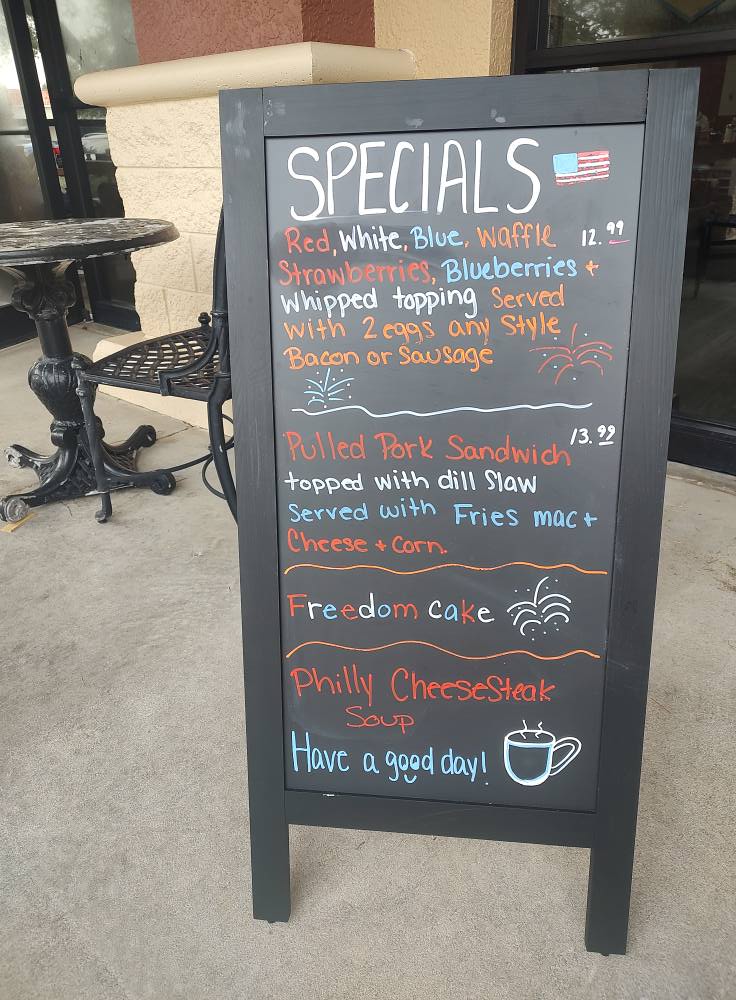 SPECIALS
Red, White, Blue, Waffle 12.99
Strawberries, Blueberries +
Whipped topping Served
with 2 eggs any Style
Bacon or Sausage
Pulled Pork Sandwich 13.99
topped with dill Slaw
Served with Fries mac +
Cheese + Corn.
Freedom cake
Philly CheeseSteak
Soup
Have a good day!